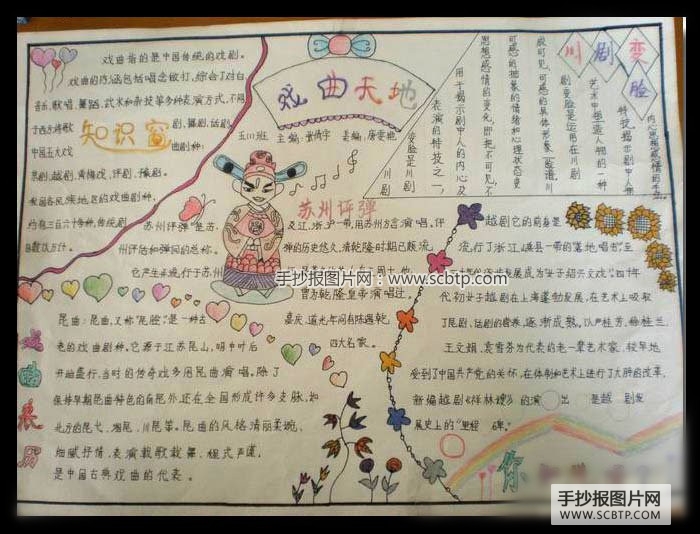 戏曲天地
五川班 主编:董倩宇 美编:唐雯艳
戏曲指的是中国传统的戏剧。
戏曲的内涵包括唱念做打,综合了对白、
音乐、歌唱、舞蹈、武术和杂技等多种表演方式,不同
于西方将歌剧、舞剧、话剧
知识窗
中国五大戏曲剧种:
京剧、越剧、黄梅戏、评剧、豫剧。
我国各民族地区的戏曲剧种,
约有三百六十多种,传统剧
目数以万计。
川剧变脸
变脸是川剧
表演的特技之一,
用于揭示剧中人的内心及
思想感情的变化,即把不可见、不
可感的抽象的情绪和心理状态变
成可见、可感的具体形象——脸谱。川
剧变脸是运用在川剧
艺术中塑造人物的一种
特技,揭示剧中人物
内心思想感情的
苏州评弹
苏州评弹是苏
州评话和弹词的总称。
它产生并流行于苏州
及江、浙、沪一带,用苏州方言演唱。评
弹的历史悠久,清乾隆时期已颇流
曾为乾隆皇帝演唱过,
嘉庆、道光年间有陈遇乾
四大名家。
越剧它的前身是
流行了浙江嵊县一带的“落地唱书”
代初女子越剧在上海蓬勃发展,在艺术上吸取
了昆剧、话剧的营养,逐渐成熟。以尹桂芳、
王文娟、袁雪芬为代表的老一辈艺术家,较早地
受到了中国共产党的关怀,在体制和艺术上进行了大胆的改革,
新编越剧《祥林嫂》的演出是越剧发
展史上的“里程碑”。
昆曲:昆曲,又称“昆腔”,是一种古
老的戏曲剧种。它源于江苏昆山,明中叶后
开始盛行,当时的传奇戏多用昆曲演唱。除了
保持早期昆曲特色的南昆外,还在全国形成许多支脉,如
北方的昆弋、湘昆、川昆等。昆曲的风格清丽柔婉、
细腻抒情,表演载歌载舞、程式严谨,
是中国古典戏曲的代表。
手抄报图片网:www.scbtp.com
手抄报图片网
WWW.SCBTP.COM